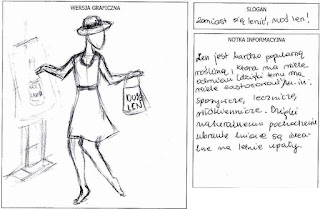 WERSJA GRAFICZNA
DUŻY
LEN
SLOGAN
Zamiast się lenić, noś len!
NOTKA INFORMACYJNA
Len jest bardzo popularną
rośliną, która ma wiele
odmian i dzięki temu ma
wiele zastosowań m.in.:
spożywcze, lecznicze,
włókiennicze. Dzięki
naturalnemu pochodzeniu
ubrania lniane są ideal-
ne na letnie upały.